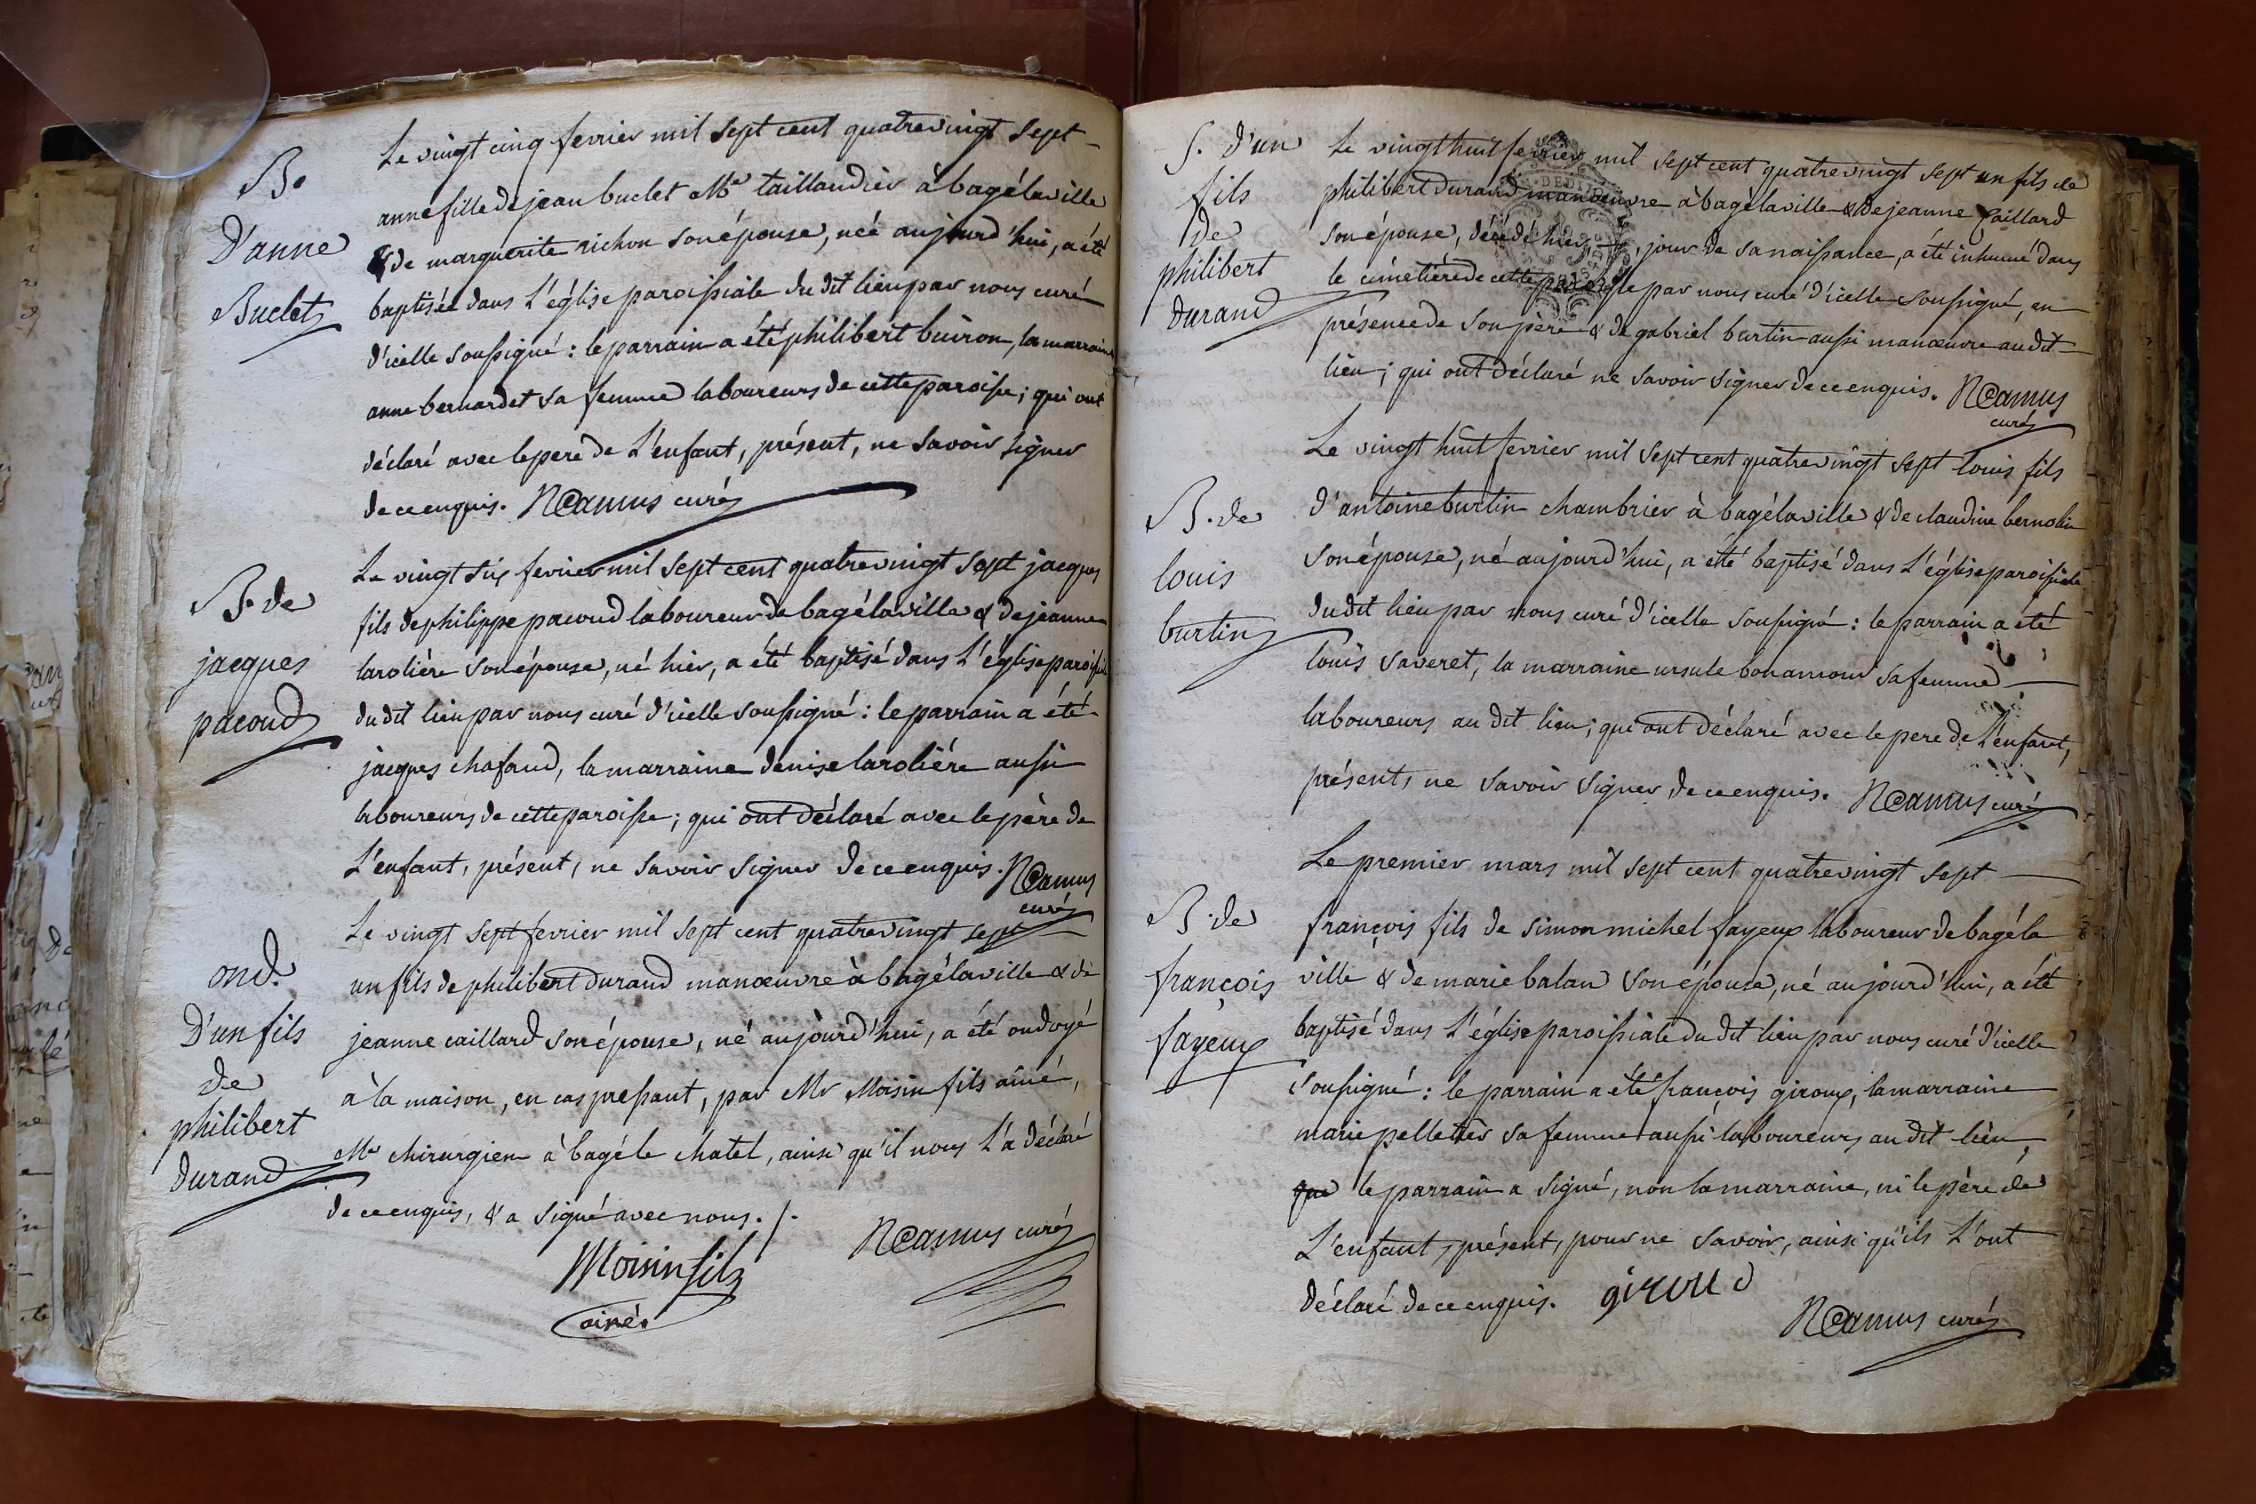 B.
D'anne
Buclet
Le vingt cinq fevrier mil sept cent quatrevingt sept
anne fille de jean buclet Me taillandier à bagélaville
& de marguerite richon son épouse, néé aujourd'hui, a été
baptiséé dans L'église paroissiale du dit lieu par nous curé
d'icelle soussigné : le parrain a été philibert buiron, la marraine
anne bernardet sa femme laboureurs de cette paroisse ; qui ont
déclaré avec le pere de L'enfant, présent, ne savoir signer
de ce enquis. NCamus curé
B. de
jacques
pacoud
Le vingt six fevrier mil sept cent quatrevingt sept jacques
fils de philippe pacoud laboureur de bagélaville & de jeanne
larolière son épouse, né hier, a été baptisé dans L'église paroissiale
du dit lieu par nous curé d'icelle soussigné : le parrain a été
jacques chafaud, la marraine denise larolière aussi
laboureurs de cette paroisse ; qui ont déclaré avec le père de
L'enfant, présent, ne savoir signer de ce enquis. NCamus
curé
ond.
D'un fils
de
philibert
durand
Le vingt sept fevrier mil sept cent quatrevingt sept
un fils de philibert durand manœuvre à bagélaville & de
jeanne caillard son épouse, né aujourd'hui, a été ondoyé
à la maison, en cas pressant, par Mr Moisin fils ainé,
Me chirurgien à bagé le chatel, ainsi qu'il nous L'a déclaré
de ce enquis, & a signé avec nous. /.
Moisin fils
ainé.
NCamus curé
S. d'un
fils
de
philibert
durand
Le vingt huit fevrier mil sept cent quatrevingt sept un fils de
philibert durand manœuvre à bagélaville & de jeanne Caillard
son épouse, décédé hier, jour de sa naissance, a été inhumé dans
le cimetière de cette paroisse par nous curé d'icelle soussigné, en
présence de son père & de gabriel burtin aussi manœuvre au dit
lieu ; qui ont déclaré ne savoir signer de ce enquis. NCamus
curé
B. de
louis
burtin
Le vingt huit fevrier mil sept cent quatrevingt sept louis fils
d'antoine burtin chambrier à bagélaville & de claudine bernolin
son épouse, né aujourd'hui, a été baptisé dans L'église paroissiale
du dit lieu par nous curé d'icelle soussigné : le parrain a été
louis saveret, la marraine ursule bonamour sa femme
laboureurs au dit lieu ; qui ont déclaré avec le pere de L'enfant,
présent, ne savoir signer de ce enquis. NCamus curé
B. de
françois
fayeux
Le premier mars mil sept cent quatrevingt sept
françois fils de simon michel fayeux laboureur de bagéla
ville & de marie balan son épouse, né aujourd'hui, a été
baptisé dans L'église paroissiale du dit lieu par nous curé d'icelle
soussigné : le parrain a été françois giroux, la marraine
marie pelletier sa femme aussi laboureurs au dit lieu,
que le parrain a signé, non la marraine, ni le père de
L'enfant, présent, pour ne savoir, ainsi qu'ils L'ont
déclaré de ce enquis. giroud
NCamus curé